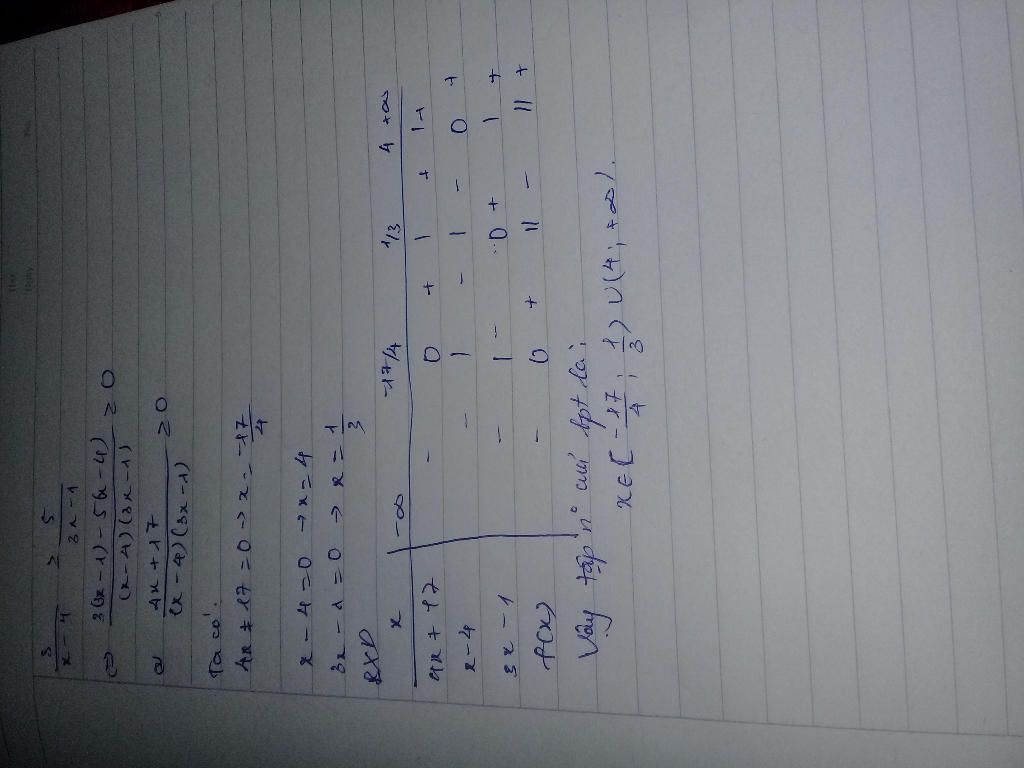 3/(x-4) ≥ 5/(3x-1)
⇔ (3(3x-1)-5(x-4))/((x-4)(3x-1)) ≥ 0
⇔ (4x+17)/((x-4)(3x-1)) ≥ 0
Ta có:
4x+17=0 → x=-17/4
x-4=0 → x=4
3x-1=0 → x=1/3
BXD
x -∞ -17/4 1/3 4 +∞
4x+17 - 0 + | + | +
x-4 - | - | - 0 +
3x-1 - | - 0 + | +
f(x) - 0 + || - || +
Vậy tập n° của bpt là:
x∈[-17/4; 1/3) ∪ (4; +∞).